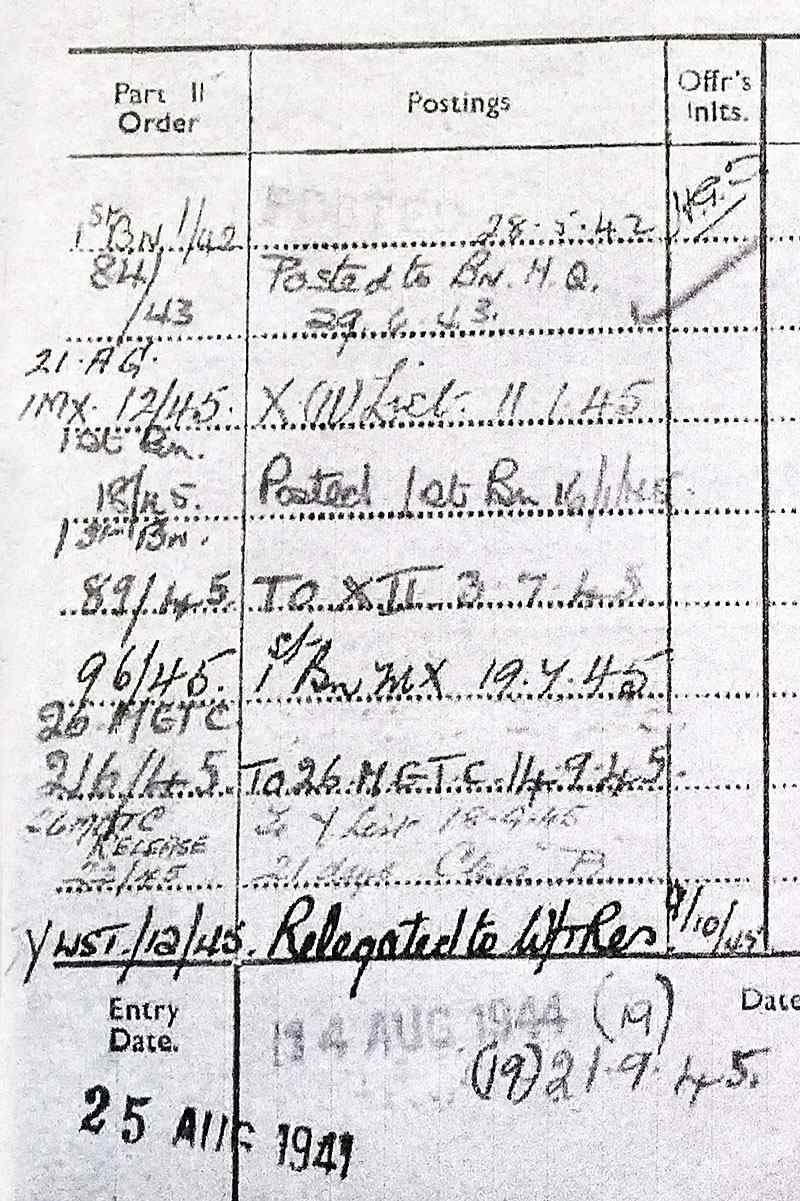 Part II Order
Postings
Offr's Inlts.
1st Bn 1/42
POSTED
28·5·42
84/
/43
Posted to Bn. H.Q.
29.6.43.
21·AG·
1MX· 12/45·
X(IV) List· 11·1·45
1st Bn.
18/45·
Posted 1st Bn 16/1/45·
1st Bn.
89/45
To XII 3·7·45
96/45·
1st Bn MX 19·7·45
26 METC
216/45
To 26·METC· 14·9·45·
26 METC
RELEASE
22/45
To Y List 18·9·45
21 days Class A
Y LIST/12/45·
Relegated to W/Res
9/10/45
Entry Date.
Date
14 AUG 1944 (19)
(19) 21·9·45·
25 AUG 1941